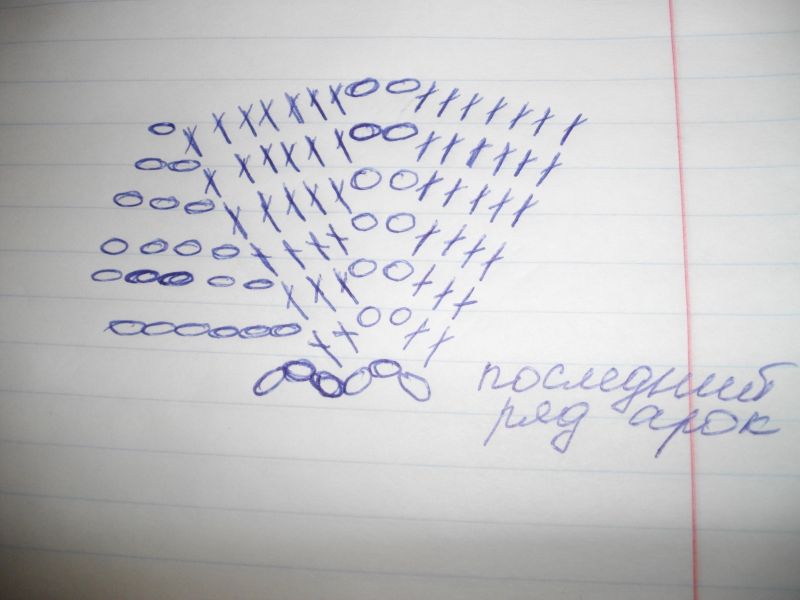 последний
ряд арок